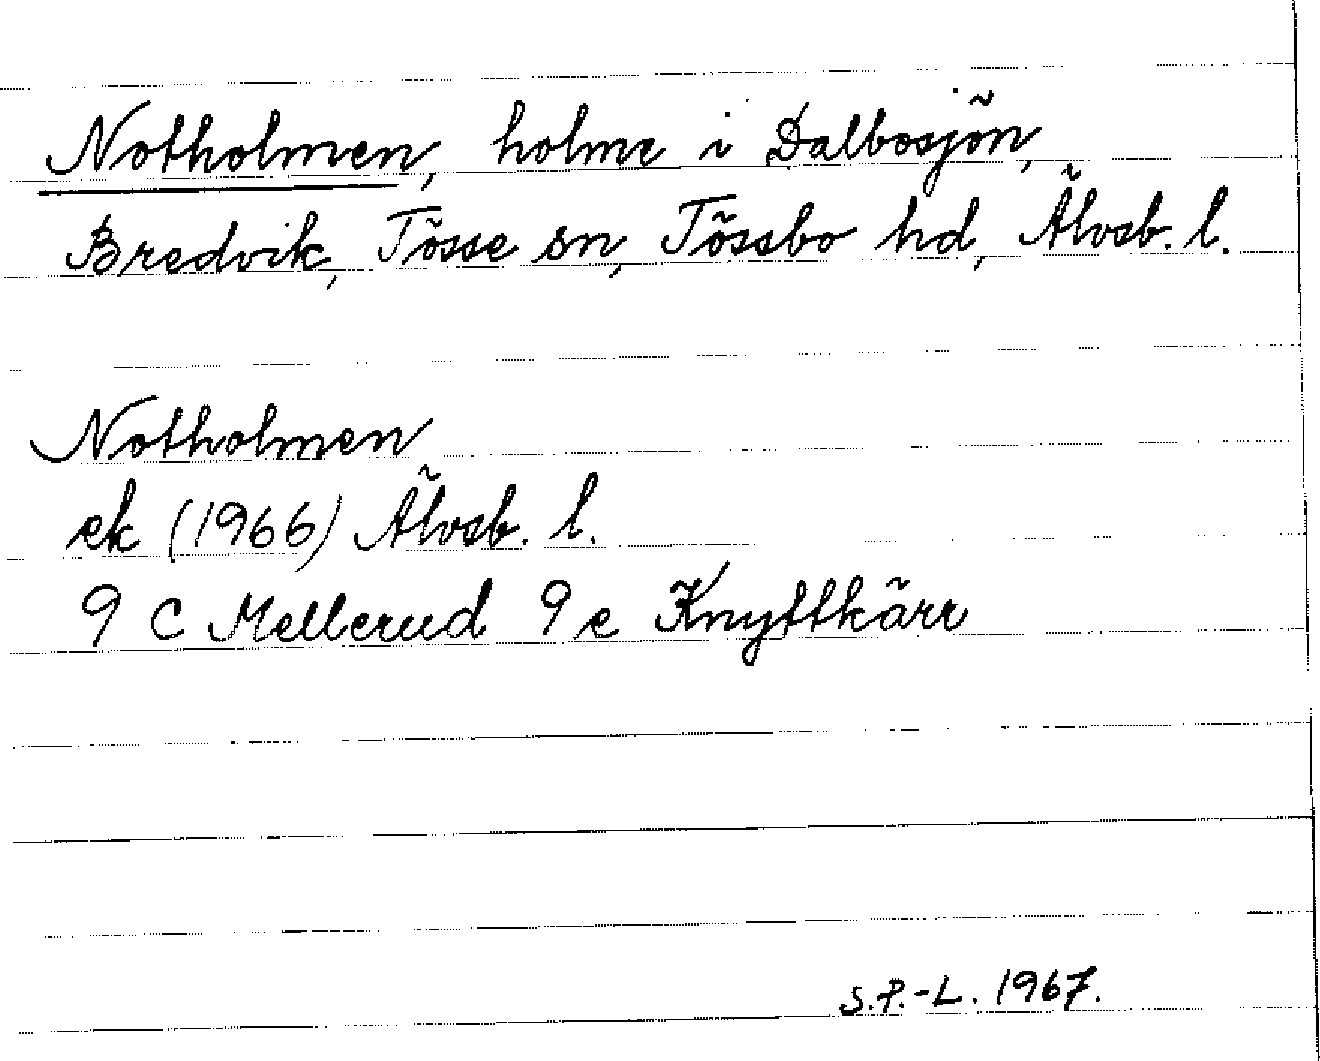 Notholmen, holme i Dalbosjön,
Bredvik, Tösse sn, Tössbo hd, Älvsb. l.
Notholmen
ek (1966) Älvsb. l.
9 C Mellerud 9 e Knyttkärr
S.P.-L. 1967.